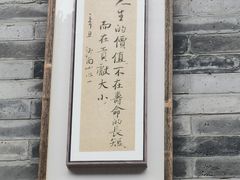 人生的價值不在壽命的長短
而在貢獻大小